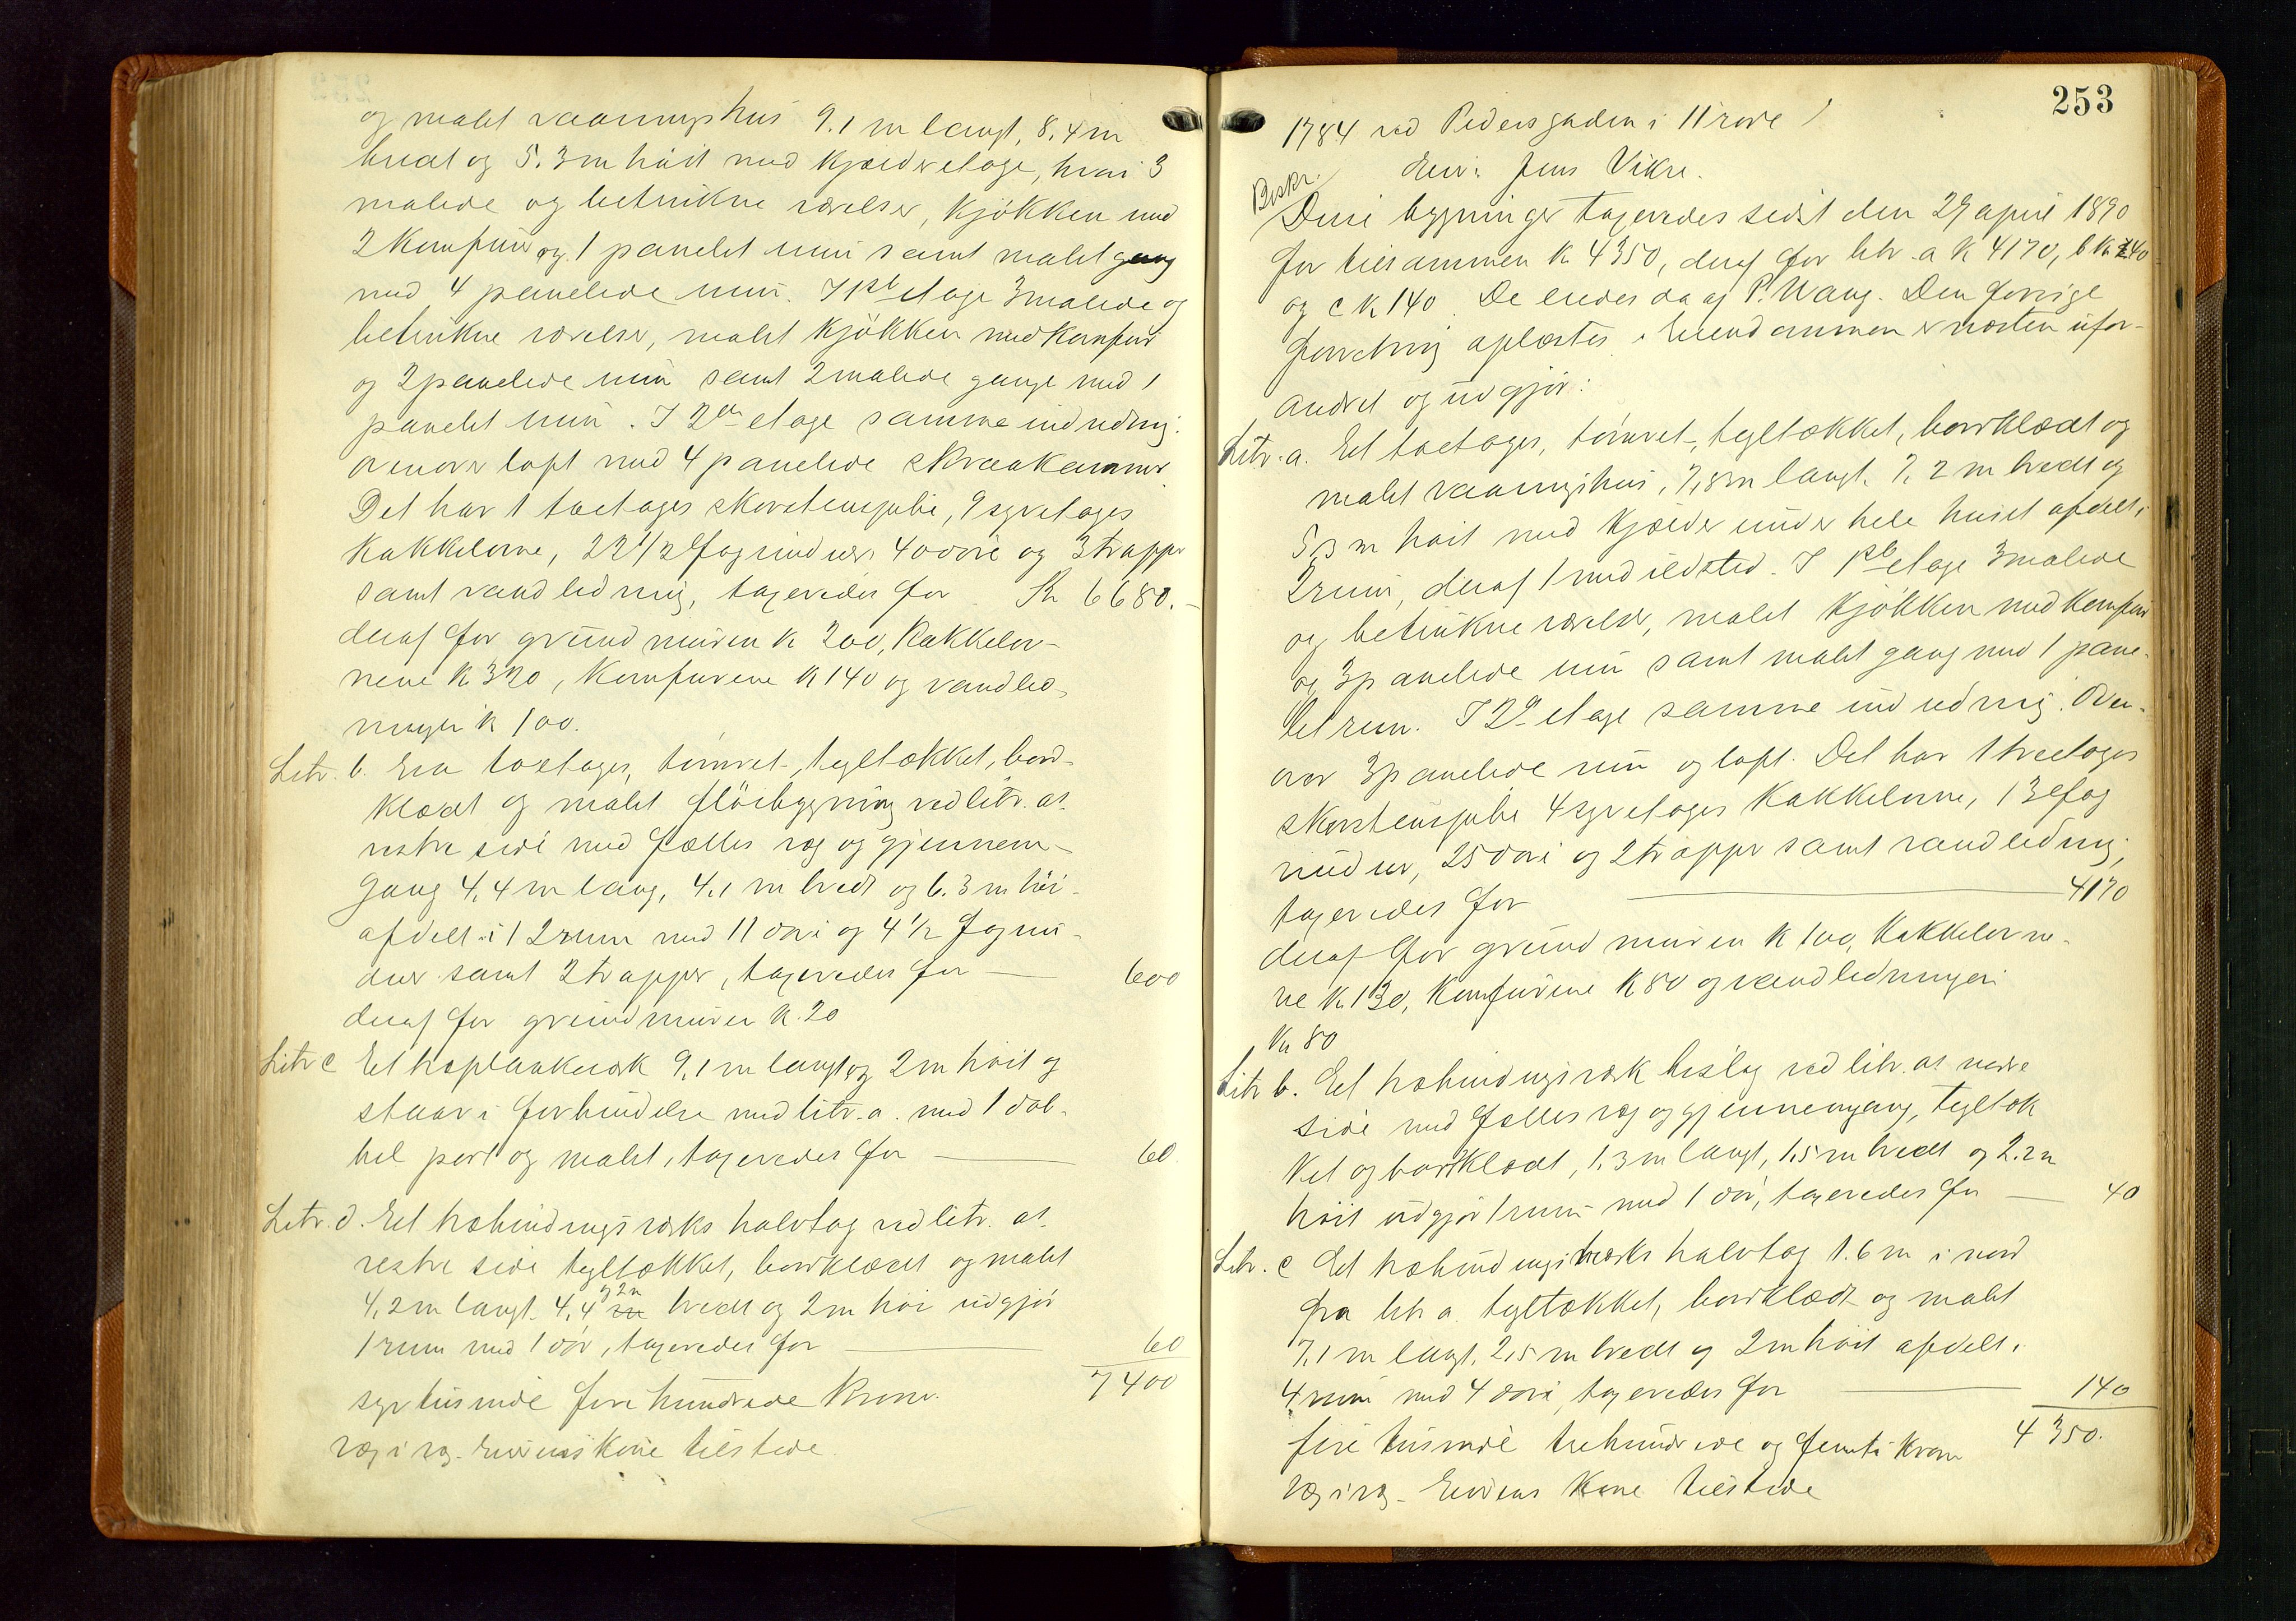 og malet vaaningshus 9.1 m langt, 8.4 m
bredt og 5.3 m høit med kjælderetage, hvori 3
malede og betrukne værelser, kjøkken med
2 komfurer og 1 panelet rum samt malet gang
med 4 panelede rum. I 1ste etage 3 malede og
betrukne værelser, malet kjøkken med komfur
og 2 panelede rum samt 2 malede gange med 1
panelet rum. I 2den etage samme indredning.
Ovenover loft med 4 panelede skraakammer.
Det har 1 toetages skorstenspibe, 9 syvetages
kakkelovne, 22 1/2 fag vinduer, 40 døre og 3 trapper
samt vandledning, taxeredes for Kr 6680.-
deraf for grundmuren k 200, Kakkelov-
nene k 320, Komfurene k 140 og vandled-
ningen k 100.
Litr. b. En toetages, tømret, tegltækket, bord-
klædt og malet fløibygning ved litr. as
vestre side med fælles væg og gjennem-
gang 4.4 m lang, 4.1 m bred og 6.3 m høi
afdelt i 12 rum med 11 døre og 4 1/2 fag vin-
duer samt 2 trapper, taxeredes for — 600
deraf for grundmuren k. 20
Litr c Et træplankeværk 9.1 m langt og 2 m høit og
staar i forbindelse med litr. a. med 1 dob-
bel port og malet, taxeredes for — 60
Litr. d. Et træbindingsværks halvtag ved litr. as
vestre side tegltækket, bordklædt og malet
4,2 m langt. 4,4 og 2 m bredt og 2 m høi udgjør
1 rum med 1 dør, taxeredes for — 60
syv tusinde fire hundrede Kroner. 7400
væg i væg. Eierens kone tilstede
253
1784 ved Pedersgaden i 11 rode
Eier: Jens Vikre.
Beskr.
Disse bygninger taxeredes sidst den 29 april 1890
for tilsammen k 4350, deraf for litr. a k 4170, b kr 40
og c k 140. De eiedes da af P. Wang. Den forrige
forretning oplæstes. Eiendommen er næsten ufor-
andret og udgjør:
Litr. a. Et toetages, tømret, tegltækket, bordklædt og
malet vaaningshus, 7,8 m langt, 7,2 m bredt og
5,3 m høit med kjælder under hele huset afdelt i
2 rum, deraf 1 med ildsted. I 1ste etage 3 malede
og betrukne værelser, malet kjøkken med komfur
og 3 panelede rum samt malet gang med 1 pane-
let rum. I 2den etage samme indredning. Oven-
over 3 panelede rum og loft. Det har 1 treetages
skorstenspibe 4 syvetages kakkelovne, 13 fag
vinduer, 25 døre og 2 trapper samt vandledning,
taxeredes for — 4170
deraf for grundmuren k 100, Kakkelovne-
ne k. 130, Komfurene k 80 og vandledningen
Kr 80
Litr b. Et træbindingsværk bislag ved litr. as nedre
side med fælles væg og gjennemgang, tegltæk
ket og bordklædt, 1,3 m langt, 1,5 m bredt og 2.2 m
høit udgjør 1 rum med 1 dør, taxeredes for — 40
Litr. c Et træbindingsværks halvtag 1.6 m i nord
fra litr a. tegltækket, bordklædt og malet
7,1 m langt, 2,5 m bredt og 2 m høit afdelt i
4 rum med 4 døre, taxeredes for — 140
fire tusinde trehundrede og femti Kroner 4350.
Væg i væg. Eierens Kone tilstede